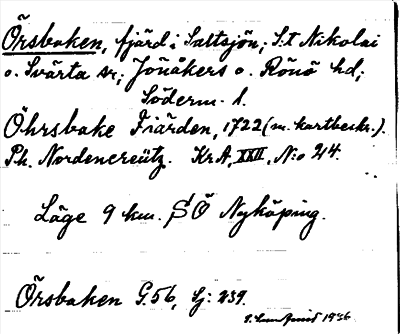 Örsbaken, fjärd i Saltsjön; S:t Nikolai
o. Svärta sn; Jönåkers o. Rönö hd;
Söderm. l.
Öhrsbake Fiärden, 1722 (m. kartbeskr.).
Ph. Nordencreütz. KrA, XXII, N:o 214.
Läge 9 km. SÖ Nyköping.
Örsbaken G.56, Sj: 239.
1936